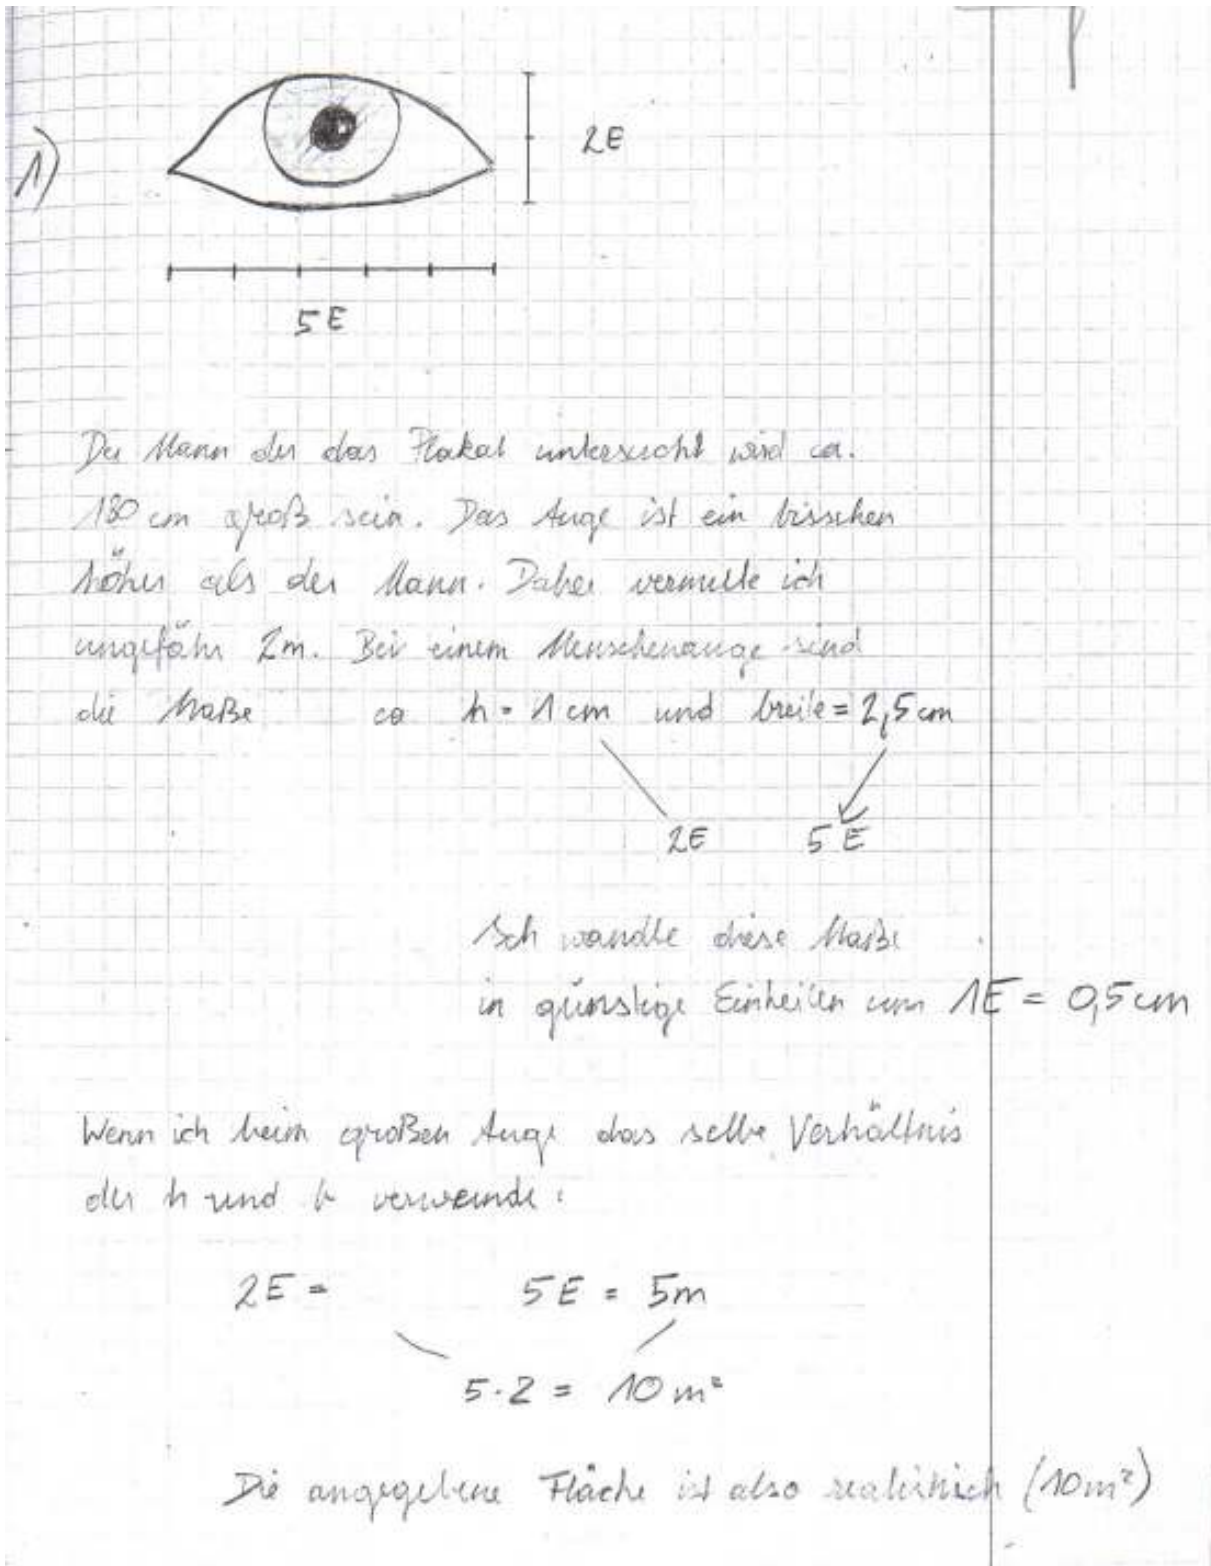 1)
2E
5E
Der Mann der das Plakat untersucht wird ca.
180 cm groß sein. Das Auge ist ein bisschen
höher als der Mann. Daher vermute ich
ungefähr 2m. Bei einem Menschenauge sind
die Maße ca h = 1 cm und breite = 2,5 cm
2E 5E
Ich wandle diese Maße
in günstige Einheiten um 1E = 0,5 cm
Wenn ich beim großen Auge das selbe Verhältnis
der h und b verwende:
2E = 5E = 5m
5 · 2 = 10 m²
Die angegebene Fläche ist also realistisch (10m²)